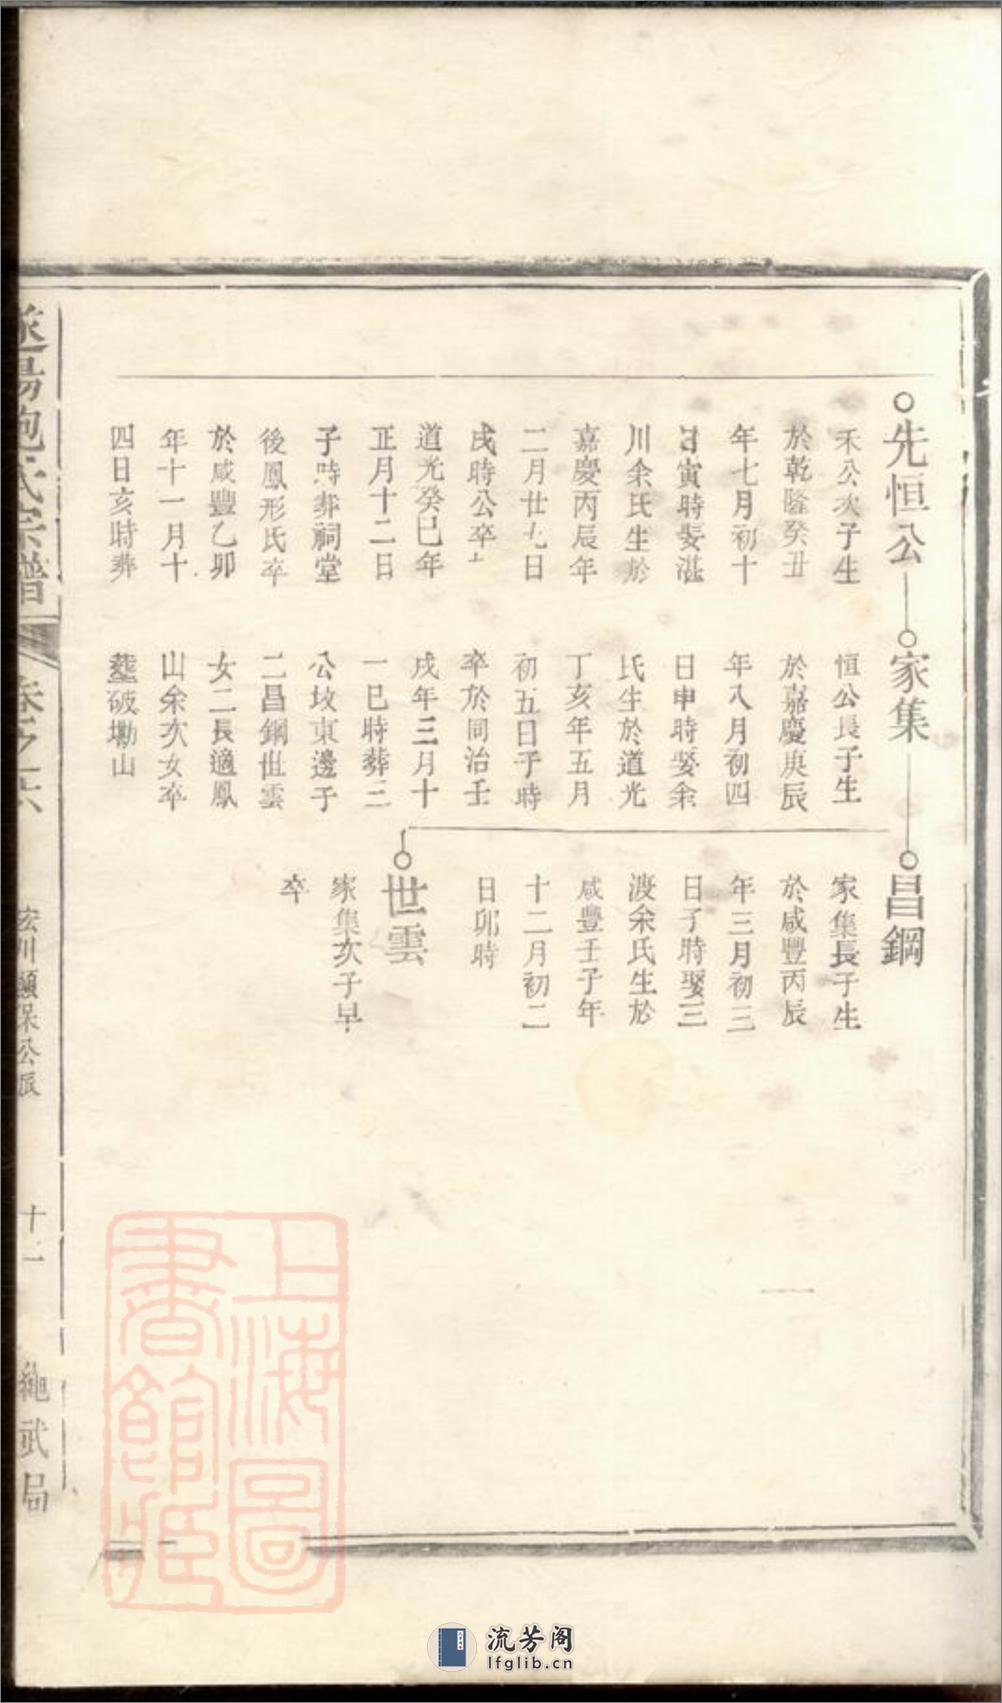 先恒公
禾公次子生
於乾隆癸丑
年七月初十
日寅時娶湛
川余氏生於
嘉慶丙辰年
二月廿九日
戌時公卒於
道光癸巳年
正月十二日
子時葬祠堂
後鳳形氏卒
於咸豐乙卯
年十一月十
四日亥時葬
家集
恒公長子生
於嘉慶庚辰
年八月初四
日申時娶余
氏生於道光
丁亥年五月
初五日子時
卒於同治壬
戌年三月十
一巳時葬三
公坟東邊子
二昌鋼世雲
女二長適鳳
山余次女卒
塟破塝山
昌鋼
家集長子生
於咸豐丙辰
年三月初三
日子時娶三
渡余氏生於
咸豐壬子年
十二月初二
日卯時
世雲
家集次子早
卒
遂陽鮑氏宗譜
卷之六
宏川顯保公派
十一
繩武局
上海圖
書館藏
流芳阁
lfglib.cn